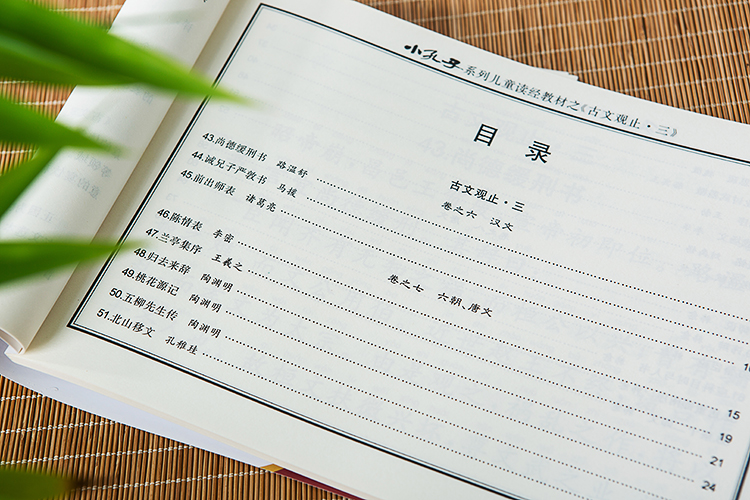 小孔子系列儿童读经教材之《古文观止·三》
目 录
古文观止·三
卷之六 汉文
43.尚德缓刑书 路温舒
44.诫兄子严敦书 马援
45.前出师表 诸葛亮
卷之七 六朝、唐文
46.陈情表 李密
47.兰亭集序 王羲之
48.归去来辞 陶渊明 15
49.桃花源记 陶渊明 19
50.五柳先生传 陶渊明 21
51.北山移文 孔稚珪 24